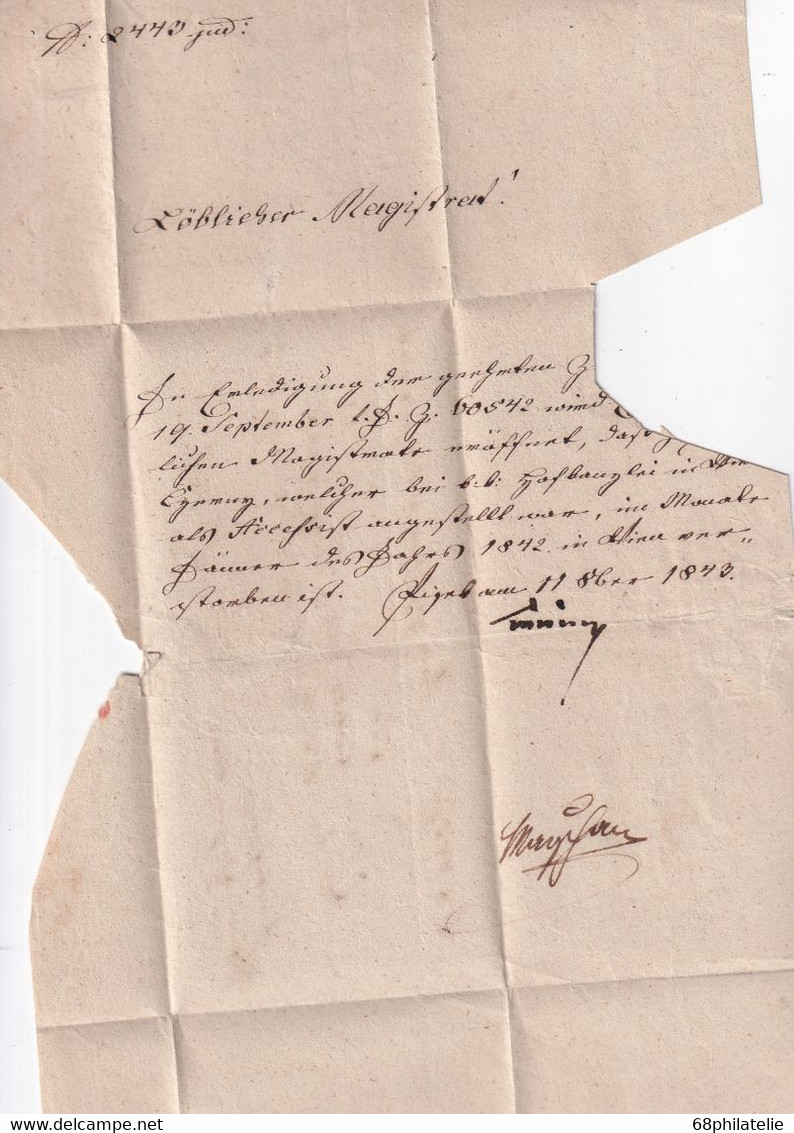 N: 2443 jud:
Löblicher Magistrat!
In Erledigung der geehrten Z
19. September l. J. Z. 60542 wird
lichen Magistrate eröffnet, daß
Czerny, welcher bei k. k: Hofkanzlei in Wie
als Accessist angestellt war, im Monate
Jänner des Jahrs 1842 in Wien ver„
storben ist. Pisek am 11 8ber 1843.
68philatelie
www.delcampe.net